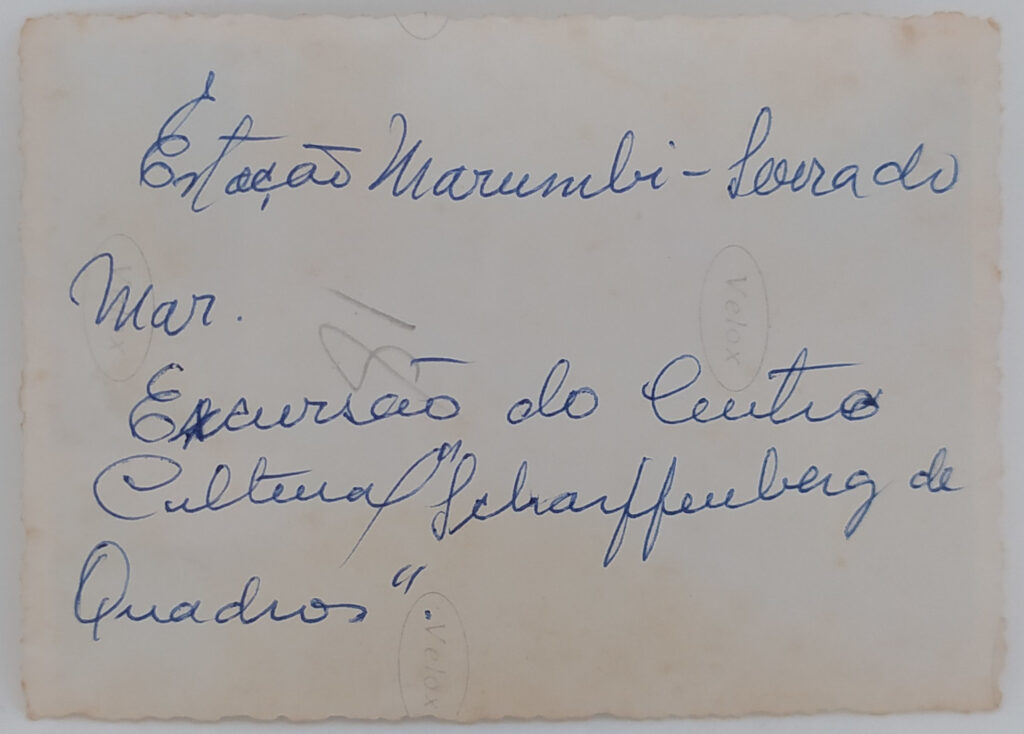 Estação Marumbi - Serra do
Mar.
Velox
Excursão do Centro
Cultural "Scharffenberg de
Quadros".
Velox